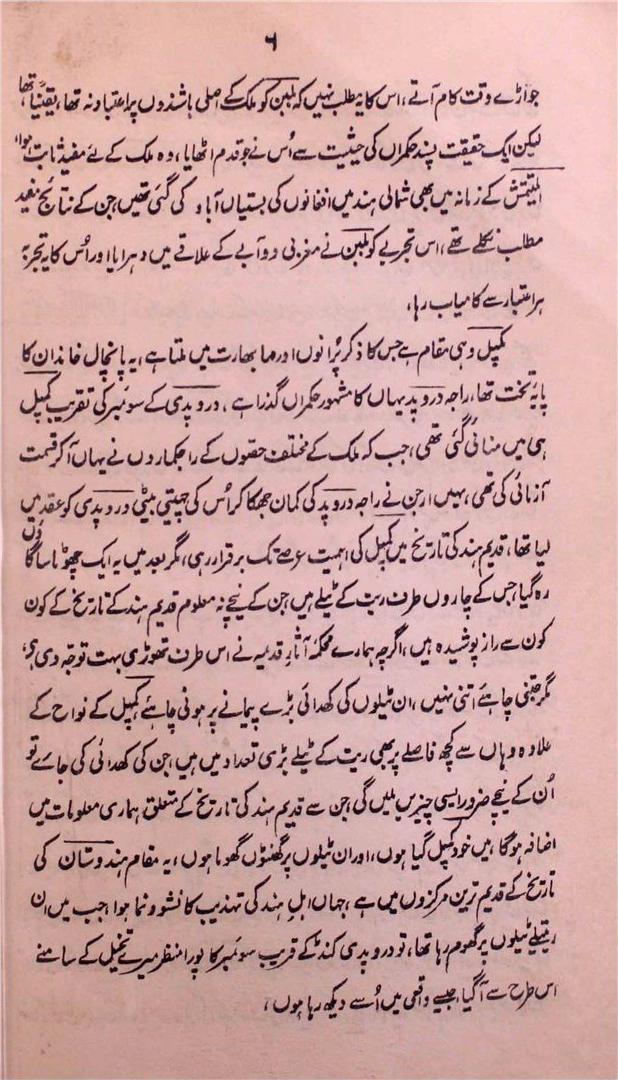 ۶
جو آڑے وقت کام آتے، اس کا یہ مطلب نہیں کہ بلبن کو ملک کے اصلی باشندوں پر اعتبار نہ تھا، یقیناً تھا
لیکن ایک حقیقت پسند حکمراں کی حیثیت سے اُس نے جو قدم اٹھایا، وہ ملک کے لئے مفید ثابت ہوا،
التمش کے زمانہ میں بھی شمالی ہند میں افغانوں کی بستیاں آباد کی گئی تھیں جن کے نتائج مفید
مطلب نکلے تھے، اس تجربے کو بلبن نے مغربی دوآبے کے علاقے میں دہرایا اور اُس کا یہ تجربہ
ہر اعتبار سے کامیاب رہا،
کمپل وہی مقام ہے جس کا ذکر پُرانوں اور مہا بھارت میں ملتا ہے، یہ پانچال خاندان کا
پایۂ تخت تھا، راجہ دروپد یہاں کا مشہور حکمراں گذرا ہے، دروپدی کے سوئمبر کی تقریب کمپل
ہی میں منائی گئی تھی، جب کہ ملک کے مختلف حصوں کے راجکماروں نے یہاں آکر قسمت
آزمائی کی تھی، یہیں ارجن نے راجہ دروپد کی کمان جھکا کر اُس کی چہیتی بیٹی دروپدی کو عقد میں
لیا تھا، قدیم ہند کی تاریخ میں کمپل کی اہمیت عرصے تک برقرار رہی، مگر بعد میں یہ ایک چھوٹا سا گاؤں
رہ گیا جس کے چاروں طرف ریت کے ٹیلے ہیں جن کے نیچے نہ معلوم قدیم ہند کے تاریخ کے کون
کون سے راز پوشیدہ ہیں، اگرچہ ہمارے محکمۂ آثار قدیمہ نے اس طرف تھوڑی بہت توجہ دی ہے،
مگر جتنی چاہئے اتنی نہیں، ان ٹیلوں کی کھدائی بڑے پیمانے پر ہونی چاہئے کمپل کے نواح کے
علاوہ وہاں سے کچھ فاصلے پر بھی ریت کے ٹیلے بڑی تعداد میں ہیں، جن کی کھدائی کی جائے تو
اُن کے نیچے ضرور ایسی چیزیں ملیں گی، جن سے قدیم ہند کی تاریخ کے متعلق ہماری معلومات میں
اضافہ ہوگا، میں خود کمپل گیا ہوں، اور ان ٹیلوں پر گھنٹوں گھوما ہوں، یہ مقام ہندوستان کی
تاریخ کے قدیم ترین مرکزوں میں ہے، جہاں اہلِ ہند کی تہذیب کا نشو و نما ہوا، جب میں ان
ریتیلے ٹیلوں پر گھوم رہا تھا، تو دروپدی کنڈ کے قریب سوئمبر کا پورا منظر میرے تخیل کے سامنے
اس طرح سے آگیا جیسے واقعی میں اُسے دیکھ رہا ہوں،